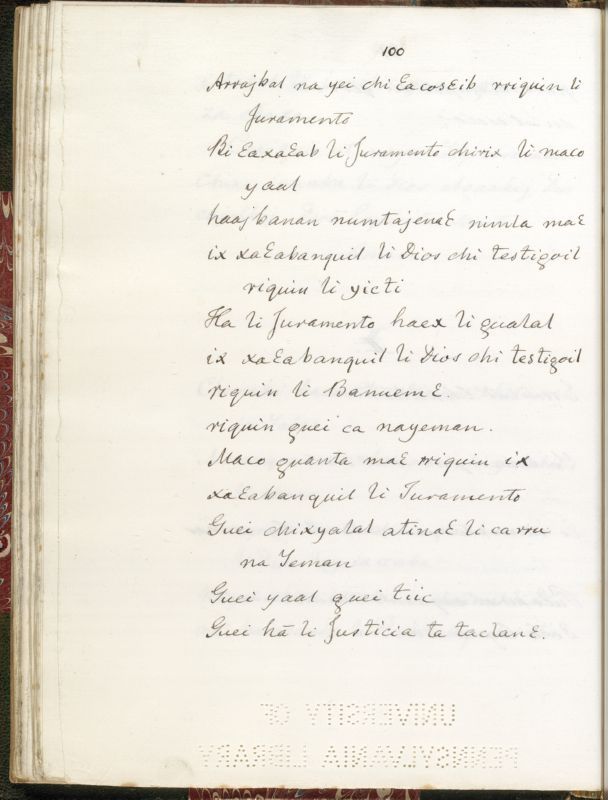 100
Arrajbal na yei chi Ɛacosɛib rriquin li
Juramento
Bi ƐaxaƐab li Juramento chirix li maco
yaal
haajbanan numtajenaƐ nimla maƐ
ix xaƐabanquil li Dios chi testigoil
riquin li yicti
Ha li Juramento haex li gualal
ix xaƐabanquil li Dios chi testigoil
riquin li BanuemƐ.
riquin guei ca nayeman.
Maco guanta maƐ rriquin ix
xaƐabanquil li Juramento
Guei chixyalal atinaƐ li carru
na Yeman
Guei yaal guei tiic
Guei hā li Justicia ta taclanƐ.
UNIVERSITY OF
PENNSYLVANIA LIBRARY